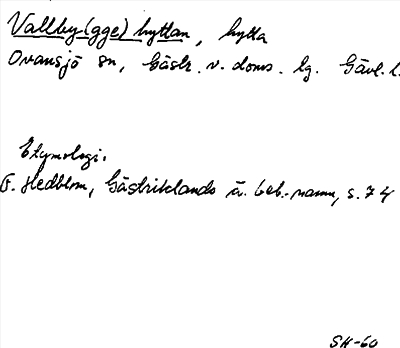 Vallby(gge)hyttan, hytta
Ovansjö sn, Gästr. v. doms. lg. Gävl. l.
Etymologi.
F. Hedblom, Gästriklands ä. beb.-namn, s. 74
SH-60